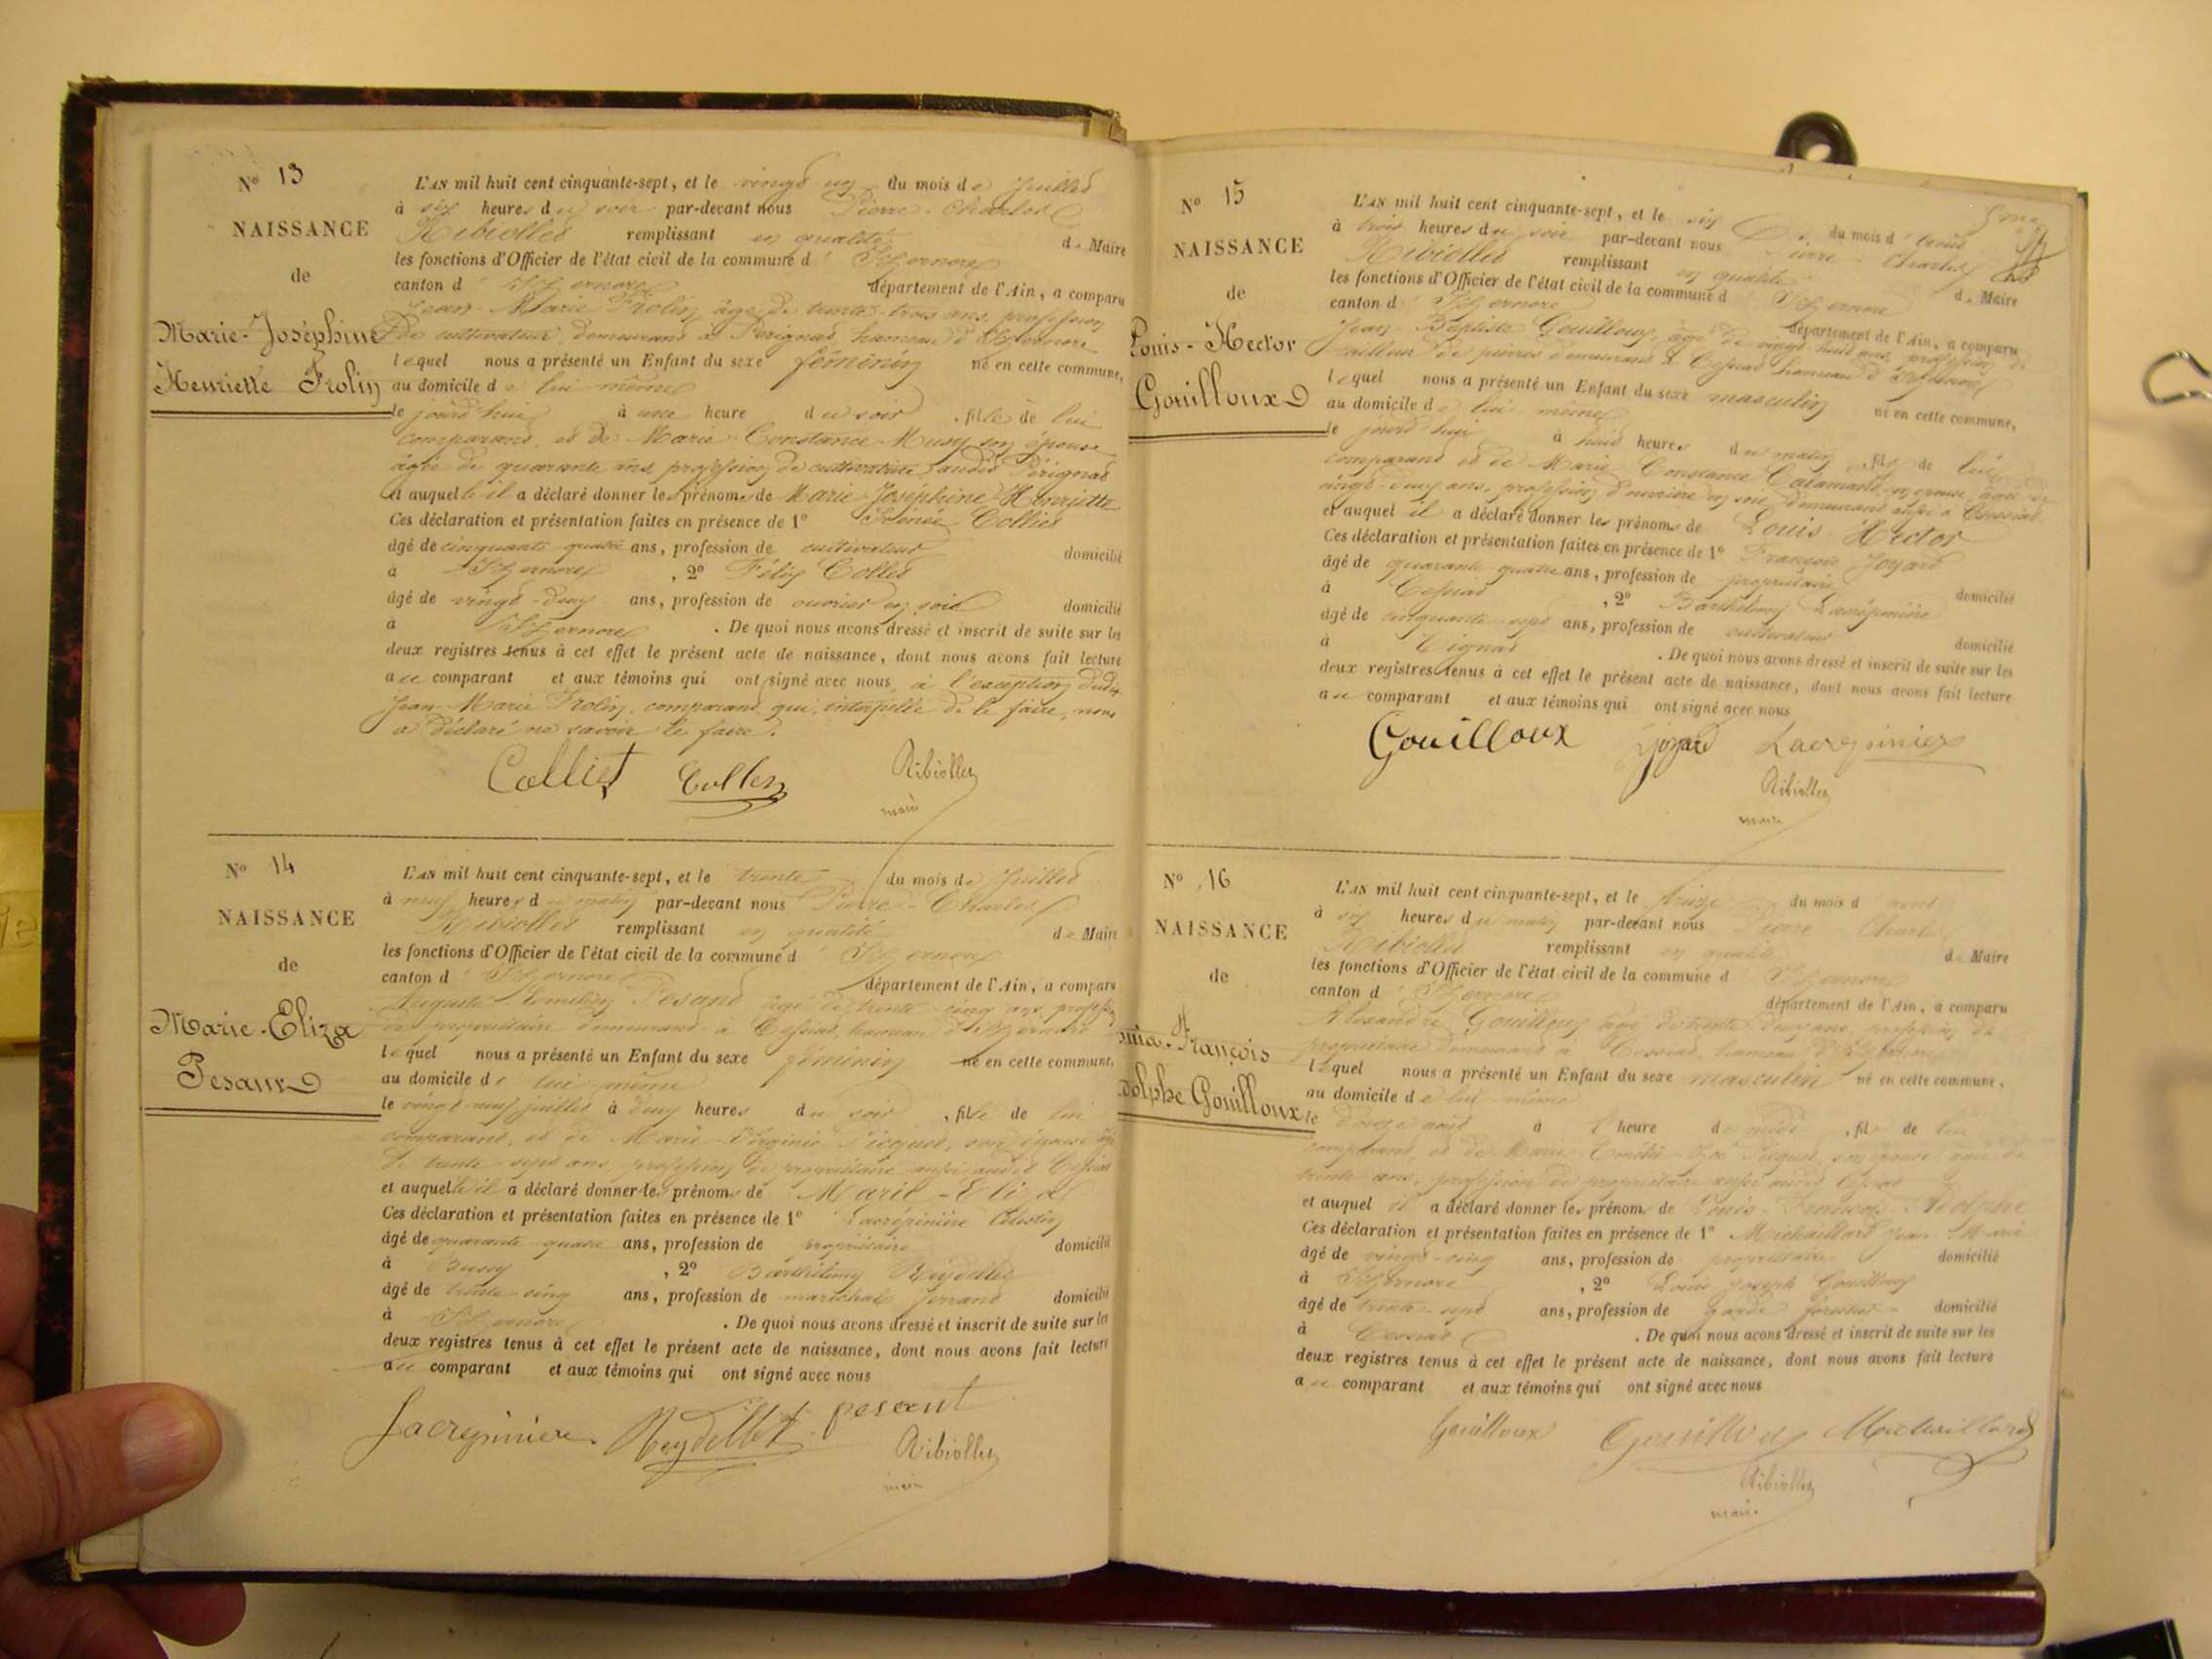 Nº 13
NAISSANCE
de
Marie-Joséphine
Henriette Frolin
L'AN mil huit cent cinquante-sept, et le vingt un du mois de Juillet
à six heures du soir par-devant nous Pierre-Charles
Ribiollet remplissant en qualité de Maire
les fonctions d'Officier de l'état civil de la commune d'Izernore
canton d'Izernore département de l'Ain, a comparu
Jean-Marie Frolin, âgé de trente-trois ans, profession
de cultivateur, demeurant à Perignat, hameau d'Izernore
lequel nous a présenté un Enfant du sexe féminin né en cette commune,
au domicile de lui-même
le jourd'hui à une heure du soir, fille de lui
comparant, et de Marie-Constance Musy son épouse
âgée de quarante ans, profession de cultivatrice, audit Pérignat
et auquelle il a déclaré donner les prénoms de Marie-Joséphine-Henriette
Ces déclaration et présentation faites en présence de 1º Collet
âgé de cinquante-quatre ans, profession de cultivateur domicilié
à Izernore, 2º Félix Collet
âgé de vingt-deux ans, profession de ouvrier en soie domicilié
à Izernore. De quoi nous avons dressé et inscrit de suite sur les
deux registres tenus à cet effet le présent acte de naissance, dont nous avons fait lecture
au comparant et aux témoins qui ont signé avec nous à l'exception dudit
Jean-Marie Frolin, comparant qui, interpellé de le faire, nous
a déclaré ne savoir le faire.
Colliet Collet Ribiollet
maire
Nº 14
NAISSANCE
de
Marie-Eliza
Pesant
L'AN mil huit cent cinquante-sept, et le trente du mois de Juillet
à neuf heures du matin par-devant nous Pierre-Charles
Ribiollet remplissant en qualité de Maire
les fonctions d'Officier de l'état civil de la commune d'Izernore
canton d'Izernore département de l'Ain, a comparu
Auguste Emilien Pesant âgé de trente-cinq ans, profession
de propriétaire demeurant à Cessiat, hameau d'Izernore
lequel nous a présenté un Enfant du sexe féminin né en cette commune,
au domicile de lui-même
le vingt-neuf juillet à deux heures du soir, fille de lui
comparant, et de Marie-Virginie Picquet, son épouse âgée
de trente-sept ans, profession de propriétaire aussi audit Cessiat
et auquelle il a déclaré donner les prénoms de Marie-Eliza
Ces déclaration et présentation faites en présence de 1º Lacrépinière Célestin
âgé de quarante-quatre ans, profession de propriétaire domicilié
à Bussy, 2º Barthélemy Reydellet
âgé de trente-cinq ans, profession de maréchal ferrant domicilié
à Izernore. De quoi nous avons dressé et inscrit de suite sur les
deux registres tenus à cet effet le présent acte de naissance, dont nous avons fait lecture
au comparant et aux témoins qui ont signé avec nous
Lacrepinière Reydellet pesant
Ribiollet
maire
Nº 15
NAISSANCE
de
Louis-Hector
Gouilloux
L'AN mil huit cent cinquante-sept, et le six du mois d'août
à trois heures du soir par-devant nous Pierre-Charles
Ribiollet remplissant en qualité de Maire
les fonctions d'Officier de l'état civil de la commune d'Izernore
canton d'Izernore département de l'Ain, a comparu
Jean-Baptiste Gouilloux, âgé de vingt-huit ans, profession de
tailleur de pierres demeurant à Cessiat hameau d'Izernore
lequel nous a présenté un Enfant du sexe masculin né en cette commune,
au domicile de lui-même
le jourd'hui à huit heures du matin, fils de lui
comparant et de Marie Constance son épouse, âgée de
vingt-deux ans, profession d'ouvrière en soie demeurant aussi à Cessiat
et auquel il a déclaré donner les prénoms de Louis-Hector
Ces déclaration et présentation faites en présence de 1º François Joyard
âgé de quarante-quatre ans, profession de propriétaire domicilié
à Cessiat, 2º Barthélemy Lacrépinière
âgé de cinquante-sept ans, profession de cultivateur domicilié
à Tignat. De quoi nous avons dressé et inscrit de suite sur les
deux registres tenus à cet effet le présent acte de naissance, dont nous avons fait lecture
au comparant et aux témoins qui ont signé avec nous
Gouilloux Joyard Lacrepinière
Ribiollet
maire
Nº 16
NAISSANCE
de
François
dolphe Gouilloux
L'AN mil huit cent cinquante-sept, et le treize du mois d'août
à six heures du matin par-devant nous Pierre-Charles
Ribiollet remplissant en qualité de Maire
les fonctions d'Officier de l'état civil de la commune d'Izernore
canton d'Izernore département de l'Ain, a comparu
Alexandre Gouilloux âgé de trente-deux ans, profession de
propriétaire demeurant à Cessiat, hameau d'Izernore
lequel nous a présenté un Enfant du sexe masculin né en cette commune,
au domicile de lui-même
le douze août à l heure de midi, fils de lui
comparant, et de Marie-Emélie-Zoé Picquet, son épouse âgée de
trente ans, profession de propriétaire aussi audit Cessiat
et auquel il a déclaré donner les prénoms de Louis-François-Adolphe
Ces déclaration et présentation faites en présence de 1º Michaillard Jean Marie
âgé de vingt-cinq ans, profession de propriétaire domicilié
à Izernore, 2º Louis Joseph Gouilloux
âgé de trente-sept ans, profession de garde forestier domicilié
à Cessiat. De quoi nous avons dressé et inscrit de suite sur les
deux registres tenus à cet effet le présent acte de naissance, dont nous avons fait lecture
au comparant et aux témoins qui ont signé avec nous
Gouilloux Gouilloux Michaillard
Ribiollet
maire